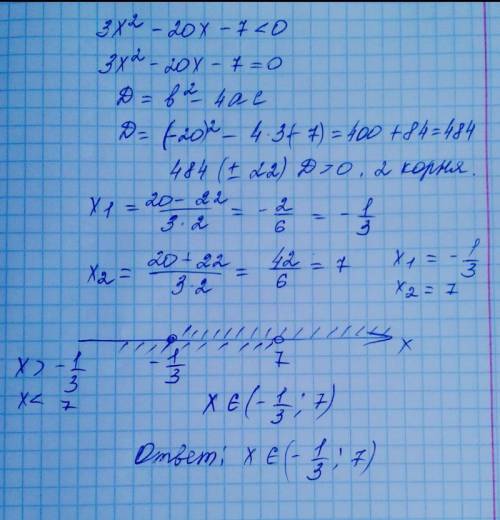 3x² - 20x - 7 < 0
3x² - 20x - 7 = 0
D = b² - 4ac
D = (-20)² - 4·3(-7) = 400 + 84 = 484
484 (± 22) D > 0, 2 корня.
x1 = (20 - 22)/(3·2) = -2/6 = -1/3
x2 = (20 + 22)/(3·2) = 42/6 = 7
x1 = -1/3
x2 = 7
x
-1/3 7
x > -1/3
x < 7
x ∈ (-1/3; 7)
Ответ: x ∈ (-1/3; 7)